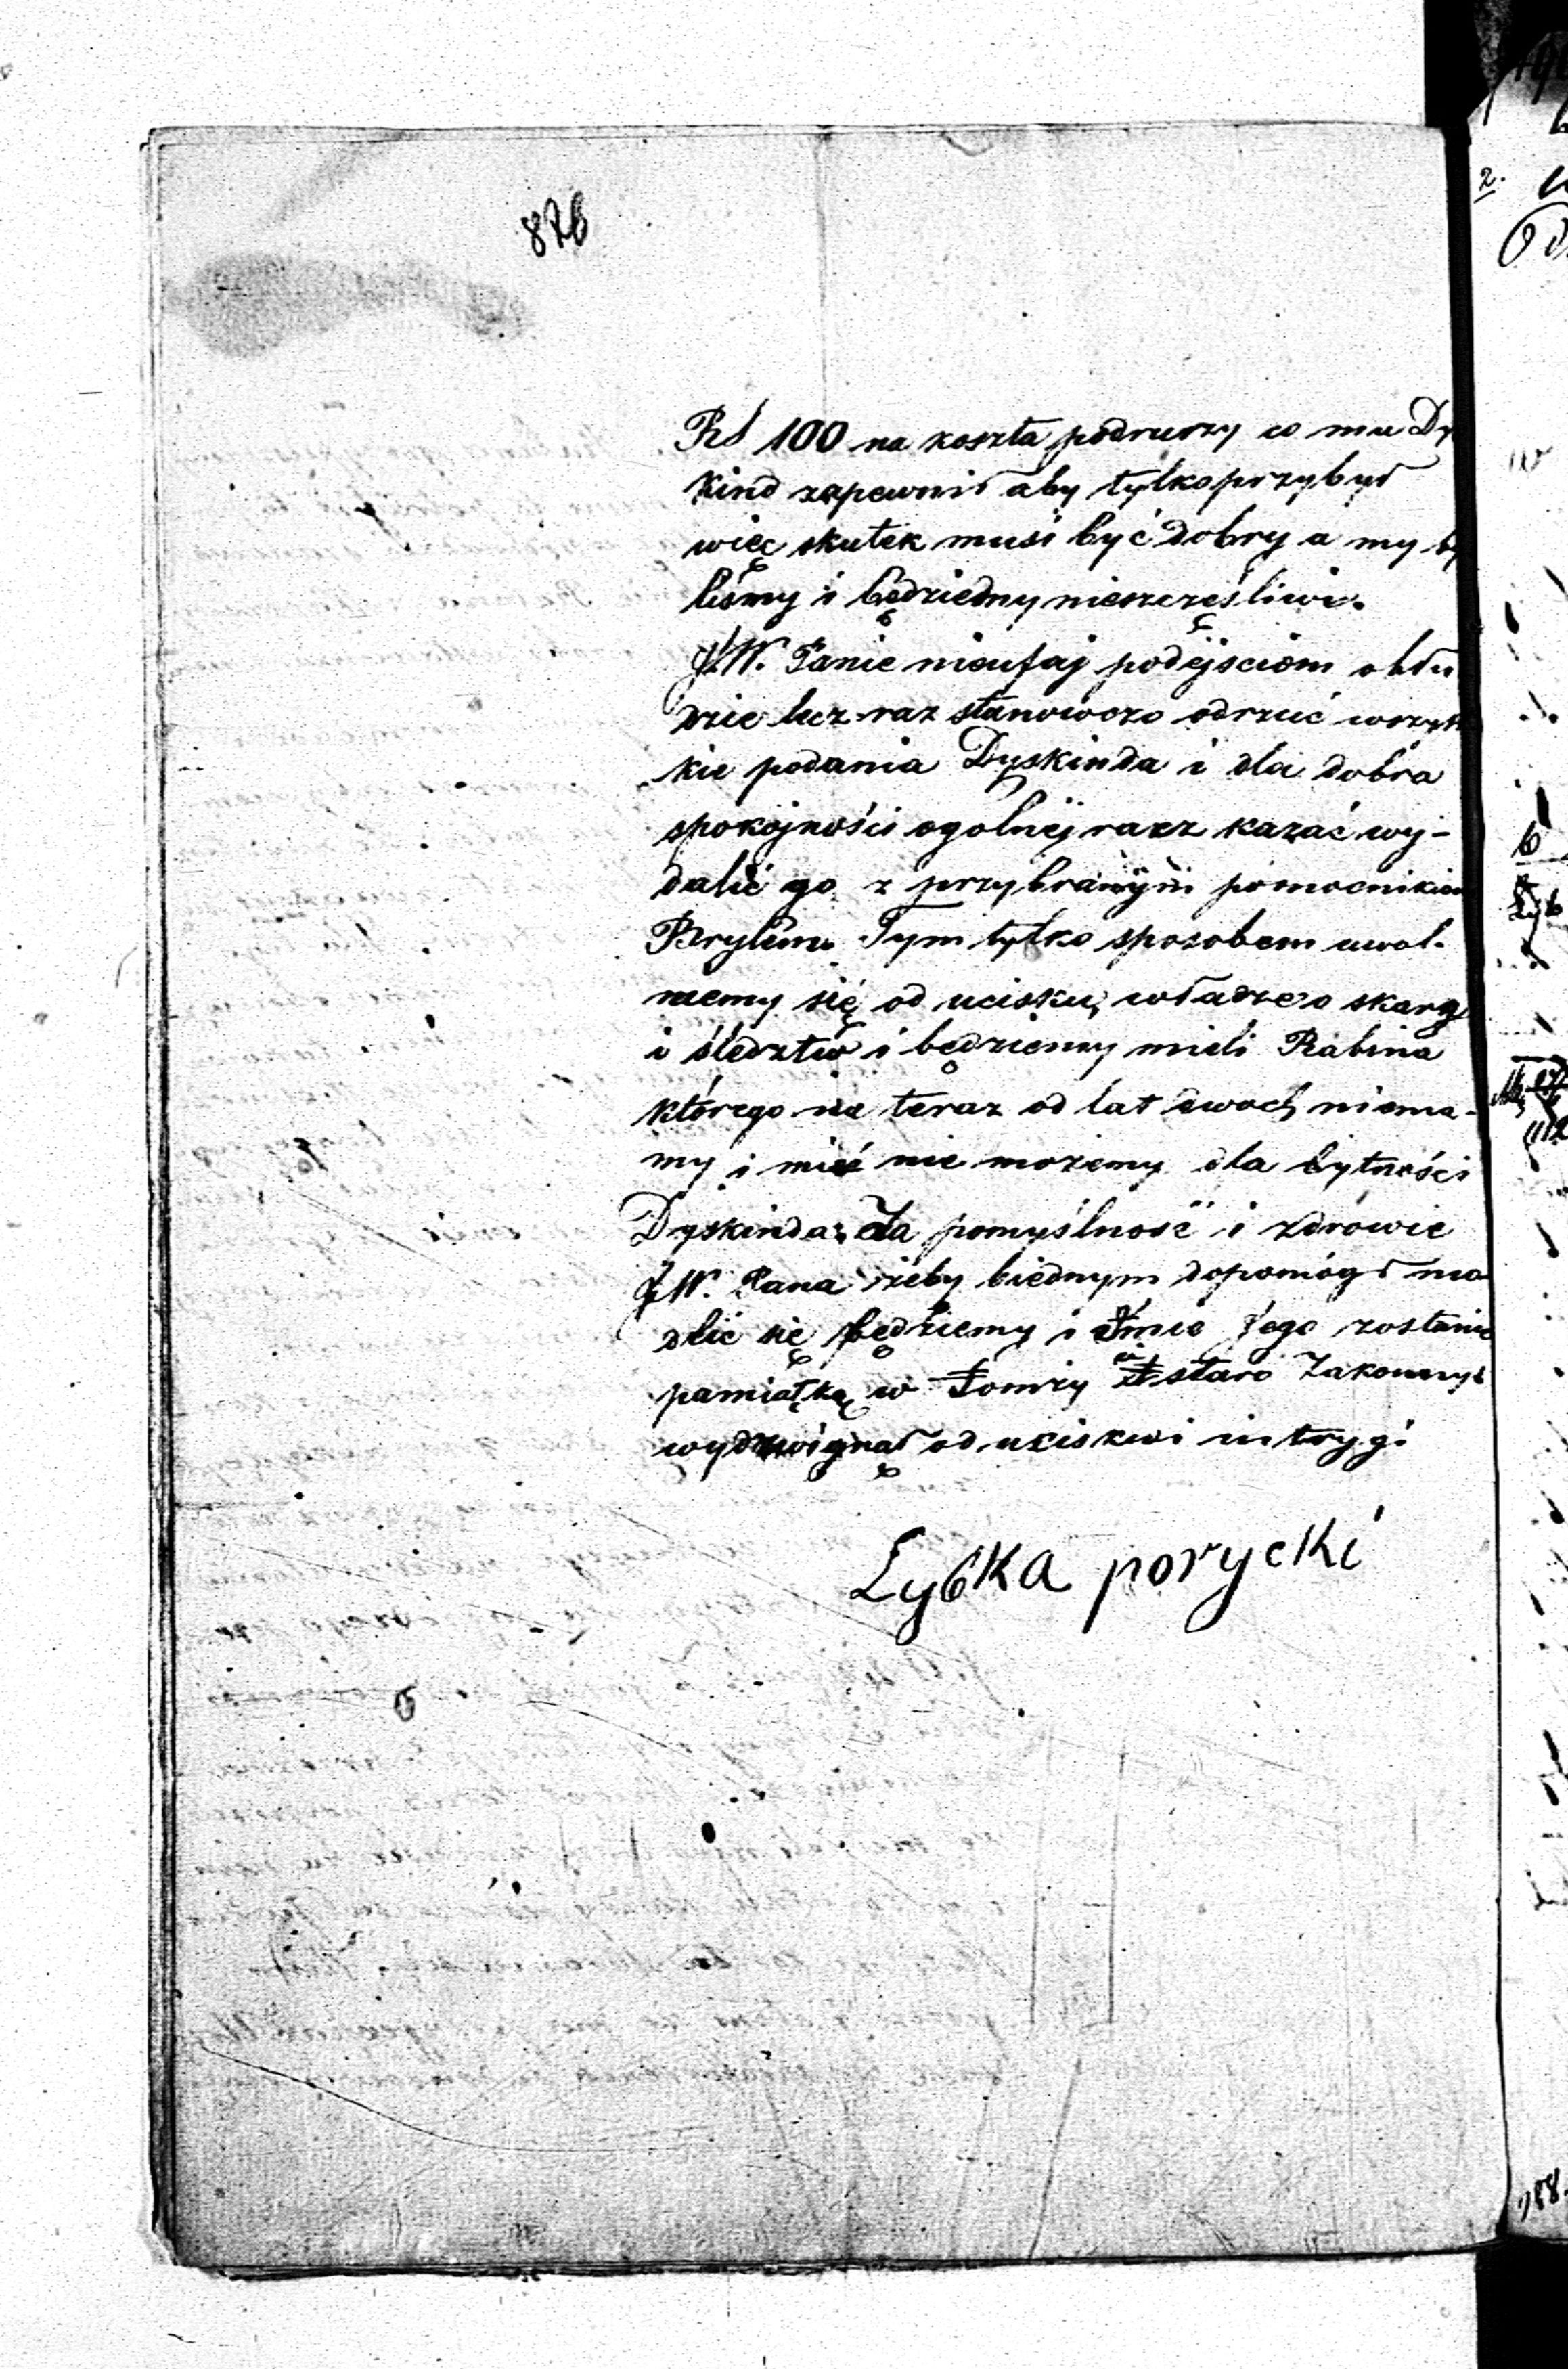 876
Rs 100 na koszta podrurzy co mu Dy
kind zapewnił aby tylko przybył
więc skutek musi być dobry a my by
liśmy i będziemy nieszczęśliwi.
JW. Panie nieufaj podejsciom obłu
dzie lecz raz stanowczo odrzuć wszyst
kie podania Dyskinda i dla dobra
spokojności ogolnéj racz kazać wy-
dalić go z przybranym pomocnikiem
Brylem. Tym tylko sposobem uwol-
niemy się od ucisku, władze o skarg
i śledztw i będziemy mieli Rabina
którego na teraz od lat dwoch niema-
my i mieć nie możemy dla bytności
Dyskinda. Za pomyślność i zdrowie
JW. Pana żeby biednym dopomógł mo
dlić się będziemy i Imie Jego zostanie
pamiątką w Łomży iż staro Zakonnych
wydzwignął od ucisku i intrygi
Lybka porycki